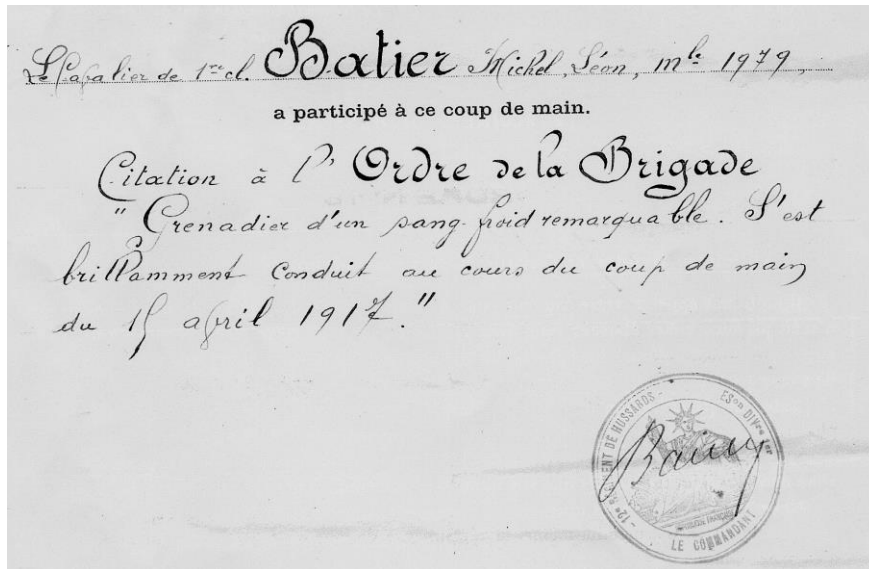 Le Cavalier de 1re cl. Batier Michel, Léon, mle 1979,
a participé à ce coup de main.
Citation à l'Ordre de la Brigade
"Grenadier d'un sang-froid remarquable. S'est
brillamment conduit au cours du coup de main
du 15 avril 1917."
12e RÉGIMENT DE HUSSARDS - ESon DIVre
LE COMMANDANT